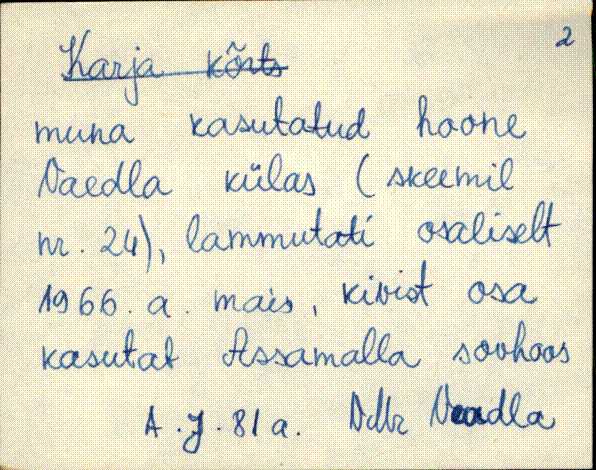 2
Karja kõrts
muna kasutatud hoone
Vaedla külas (skeemil
nr. 24), lammutati osaliselt
1966. a. mais, kivist osa
kasutat Assamalla sovhoos
A.J. 81 a. VMr Veadla